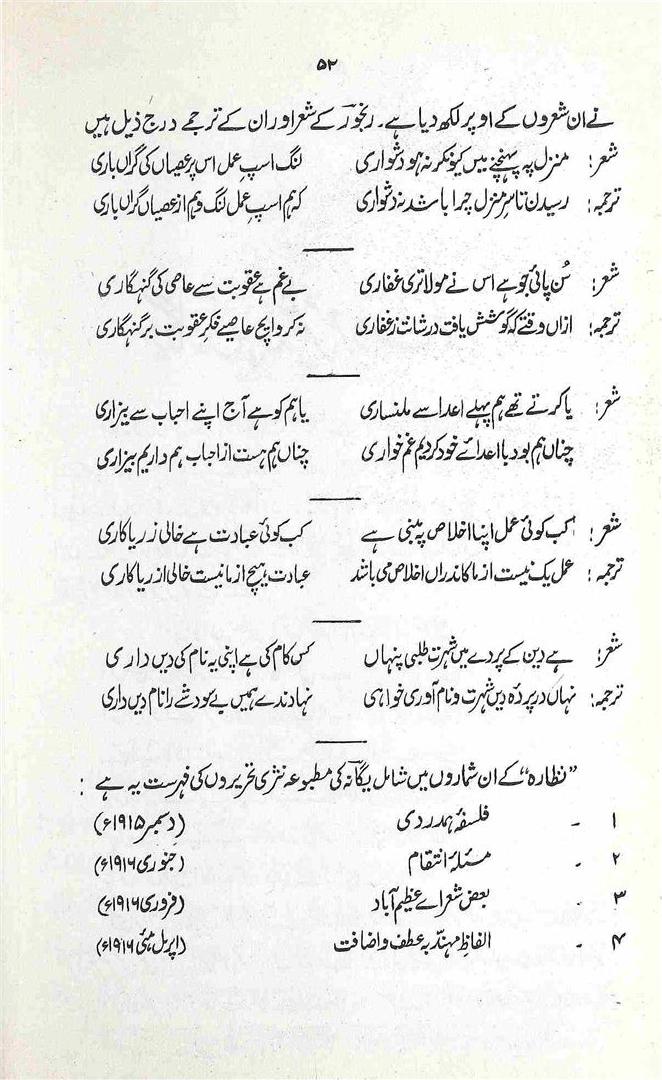 ۵۲
نے ان شعروں کے اوپر لکھ دیا ہے۔ رنجور کے شعر اور ان کے ترجمے درج ذیل ہیں
شعر: منزل پہ پہنچنے میں کیونکر نہ ہو دشواری لنگ اسپِ عمل اس پر عصیاں کی گراں باری
ترجمہ: رسیدن تا سرِ منزل چرا باشد نہ دشواری کہ ہم اسپِ عمل لنگ و ہم از عصیاں گراں باری
شعر: سُن پائی جو ہے اس نے مولا تری غفاری بے غم ہے عقوبت سے عاصی کی گنہگاری
ترجمہ: ازاں وقتے کہ گوشش یافت در شانت ز غفاری نہ کرد ایچ عاصیے فکرِ عقوبت بر گنہگاری
شعر: یا کرتے تھے ہم پہلے اعدا سے ملنساری یا ہم کو ہے آج اپنے احباب سے بیزاری
چناں ہم بود با اعدائے خود کردیم غم خواری چناں ہم ہست از احباب ہم داریم بیزاری
شعر: کب کوئی عمل اپنا اخلاص پہ مبنی ہے کب کوئی عبادت ہے خالی ز ریاکاری
ترجمہ: عمل یک نیست از ما کاندراں اخلاص می باشد عبادت ہیچ از ما نیست خالی از ریاکاری
شعر: ہے دین کے پردے میں شہرت طلبی پنہاں کس کام کی ہے اپنی یہ نام کی دیں داری
ترجمہ: نہاں در پردۂ دیں شہرت و نام آوری خواہی نہادند ہمیں بے سود شے را نام دیں داری
”نظارہ“ کے ان شماروں میں شامل یگانہ کی مطبوعہ نثری تحریروں کی فہرست یہ ہے :
۱ - فلسفۂ ہمدردی (دسمبر ۱۹۱۵ء)
۲ - مسئلۂ انتقام (جنوری ۱۹۱۶ء)
۳ - بعض شعراے عظیم آباد (فروری ۱۹۱۶ء)
۴ - الفاظِ مہند بہ عطف و اضافت (اپریل مئی ۱۹۱۶ء)